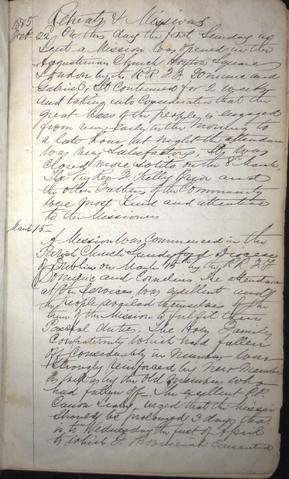 Retreats & Missions
1885
Feb. 22. On this day the first Sunday of
Lent a Mission was opened in the
Augustinian Church Hoxton Square
London by the R.R. F.F. Dominic and
Gabriel. It continued for 2 weeks
and taking into consideration that the
great mass of the people is engaged
from very early in the Morning to
a late hour at night the attendance
was very satisfactory. It was
closed
on the 8th March
The Very Rev. F. Kelly Prior and
the other Fathers of the Community
were most kind and attentive
to the Missioners
March 15
A Mission was Commenced in the
Parish Church
Diocese
of Dublin on March 15 by the R.R. F.F.
Dominic and Cornelius. The attendance
at the Services was excellent and
the people availed themselves of the
time of the Mission to fulfil their
Paschal duties. The Holy Family
Confraternity which had fallen
off considerably in number was
strongly reinforced by new Members
as well as by the old members who
had fallen off. The excellent P.P.
Canon
urged that the mission
should be prolonged 3 days that
is, to Wednesday the first of April
to which F. Provincial Consented